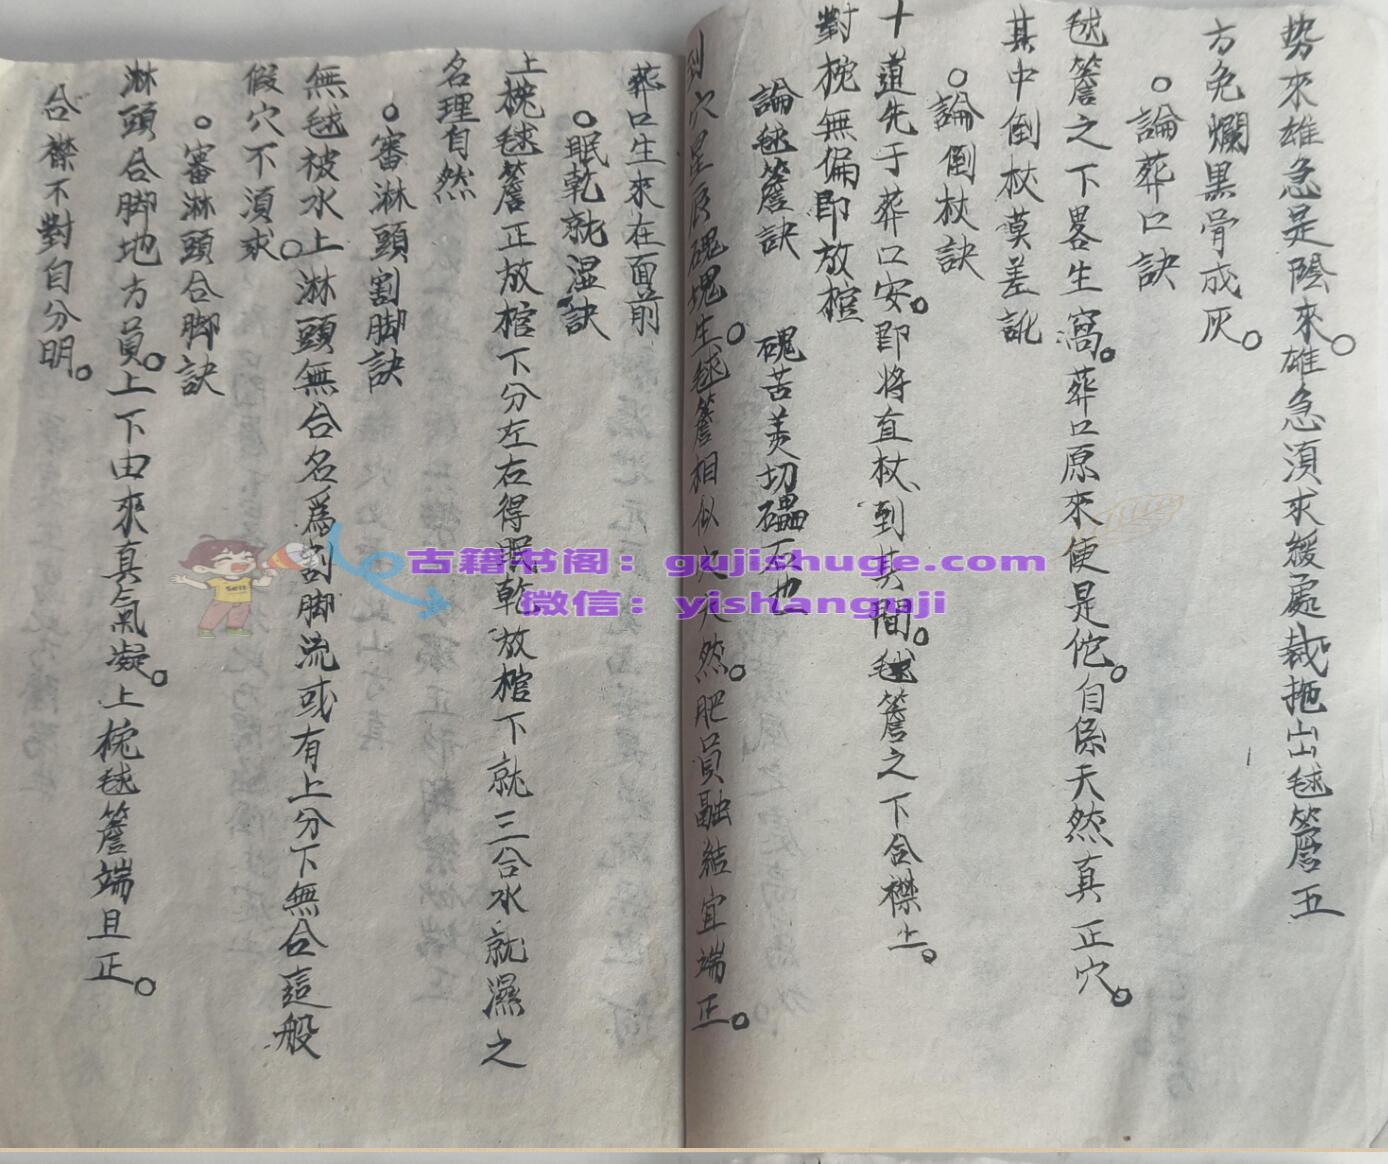 势來雄急是陰來。雄急須求緩處裁拖出毬簷五
方免爛黒骨成灰。
○論葬口訣
毬簷之下畧生窩。葬口原來便是佗。自係天然真正穴。
其中倒杖莫差訛
○論倒杖訣
十道先于葬口安。即将直杖到其間。毬簷之下合襟上。
對梡無偏即放棺
論毬簷訣 磈苦美切礧石也
到穴星辰磈塊生。毬簷相似 天然。肥員融結宜端正。
葬口生來在面前
○眠乾就湿訣
上梡毬簷正放棺下分左右得眠乾放棺下就三合水就濕之
名理自然
○審淋頭割脚訣
無毬被水上淋頭無合名爲割脚流或有上分下無合這般
假穴不須求。
○審淋頭合脚訣
淋頭合脚地方員。上下由來真氣凝。上梡毬簷端且正。
合襟不對自分明。
古籍书阁：gujishuge.com
微信：yishanguji